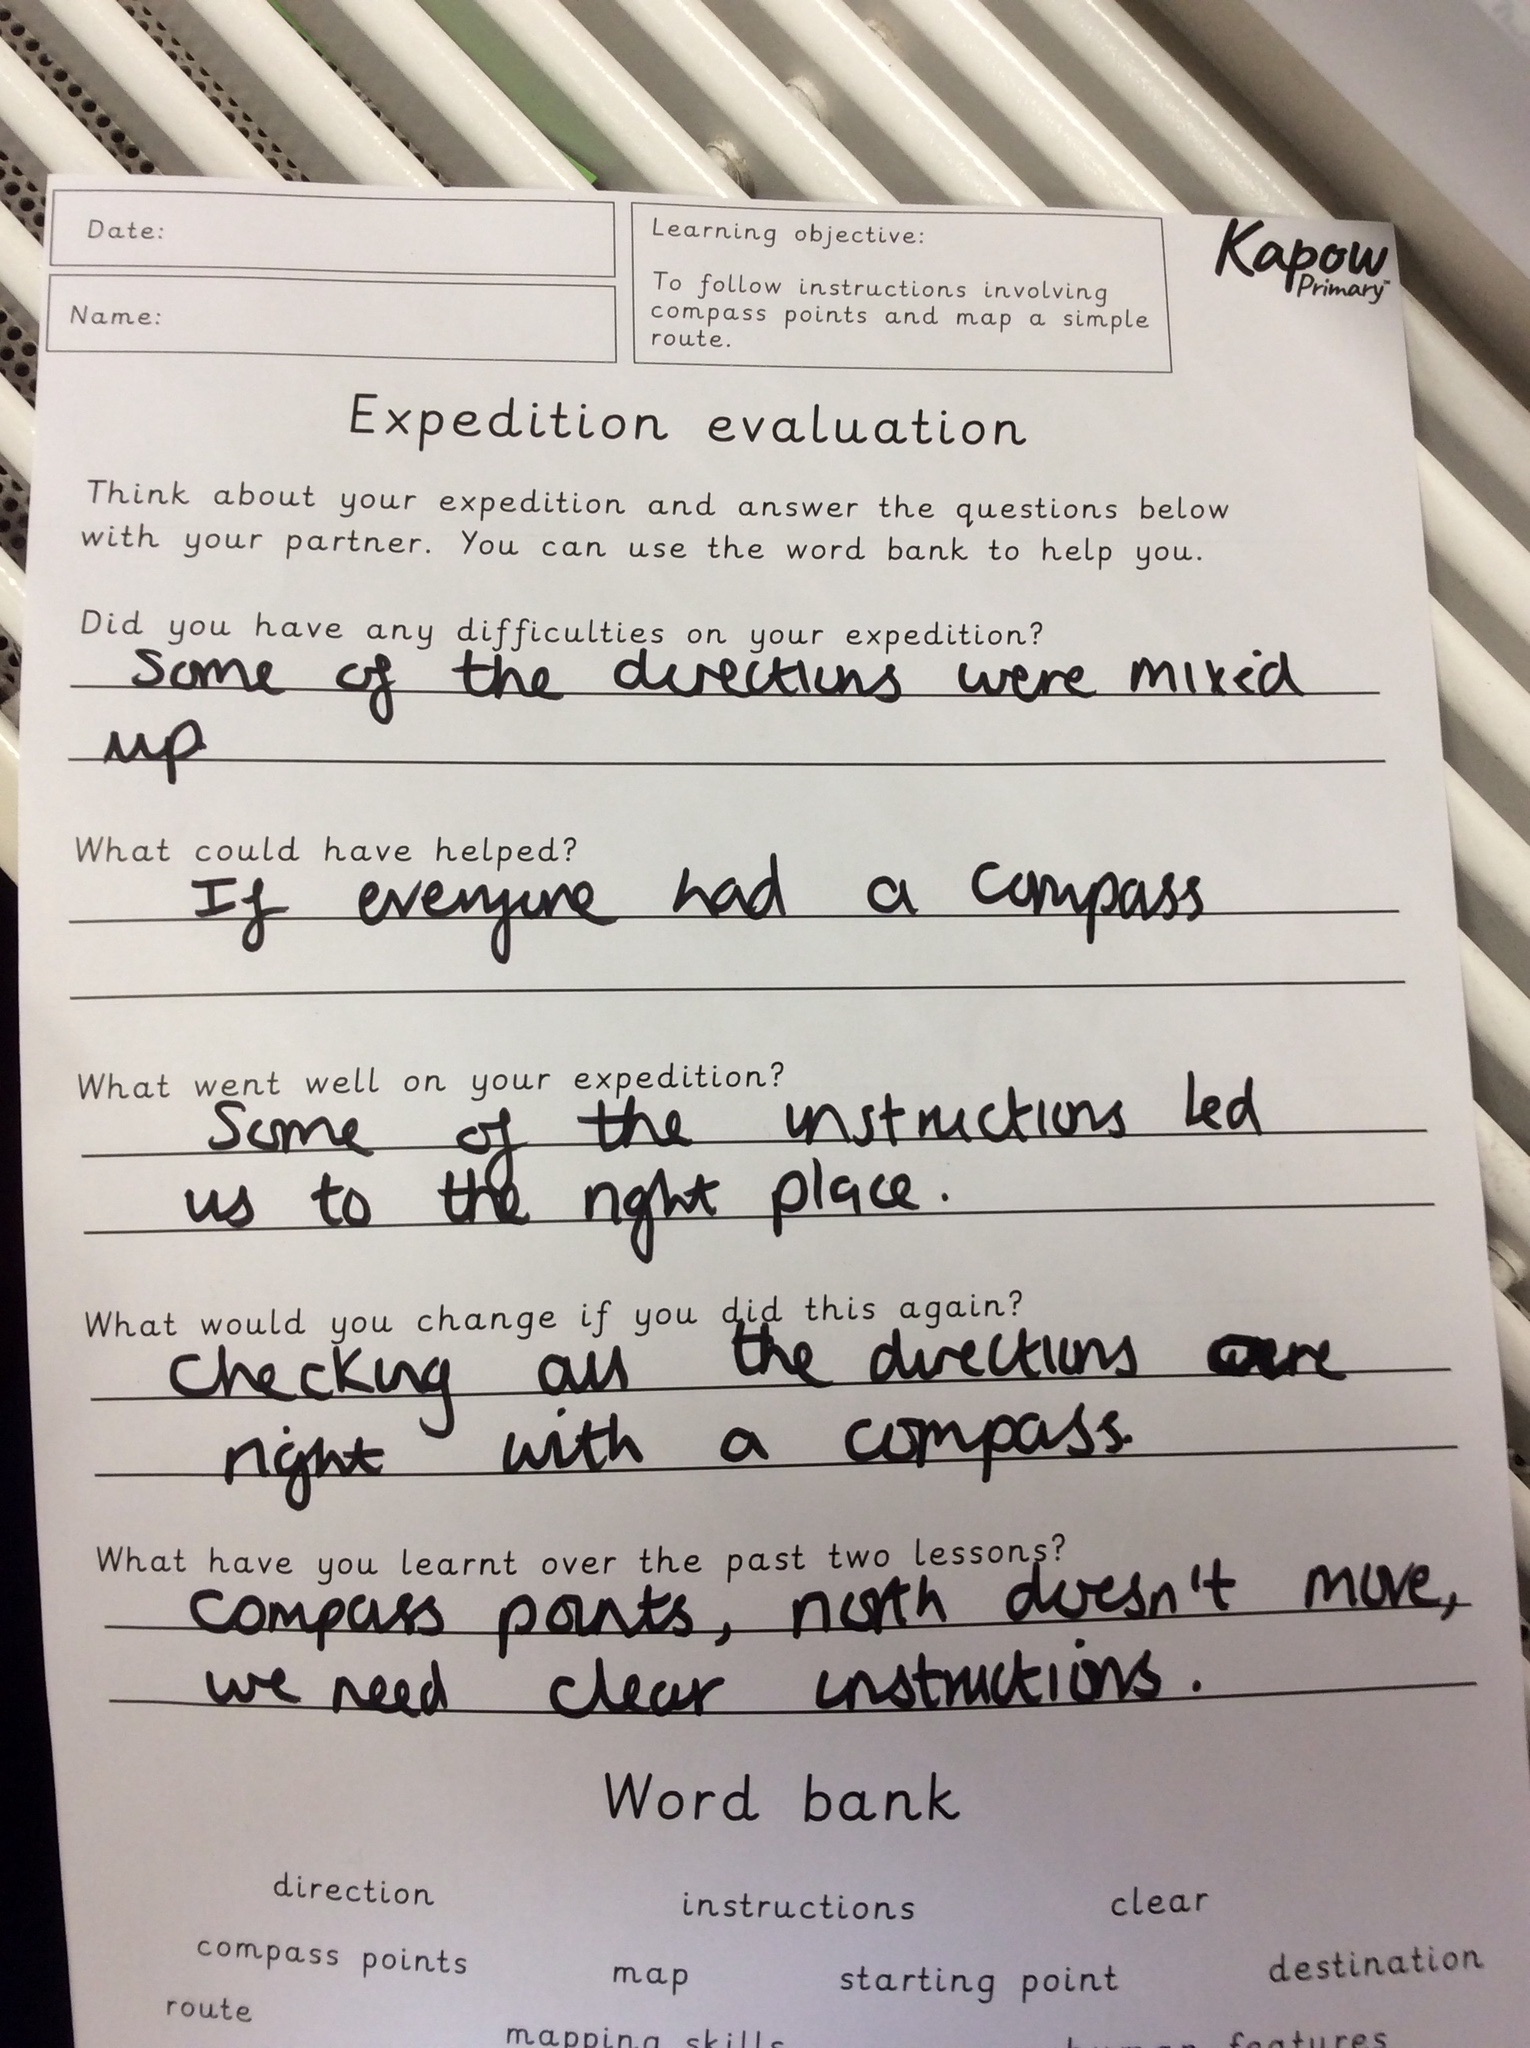 Date:
Name:
Learning objective:
To follow instructions involving
compass points and map a simple
route.
Kapow
Primary™
Expedition evaluation
Think about your expedition and answer the questions below
with your partner. You can use the word bank to help you.
Did you have any difficulties on your expedition?
Some of the directions were mixed
up
What could have helped?
If everyone had a compass
What went well on your expedition?
Some of the instructions led
us to the right place.
What would you change if you did this again?
Checking all the directions are
right with a compass.
What have you learnt over the past two lessons?
compass points, north doesn't move,
we need clear instructions.
Word bank
direction instructions clear
compass points map starting point destination
route
mapping skills human features